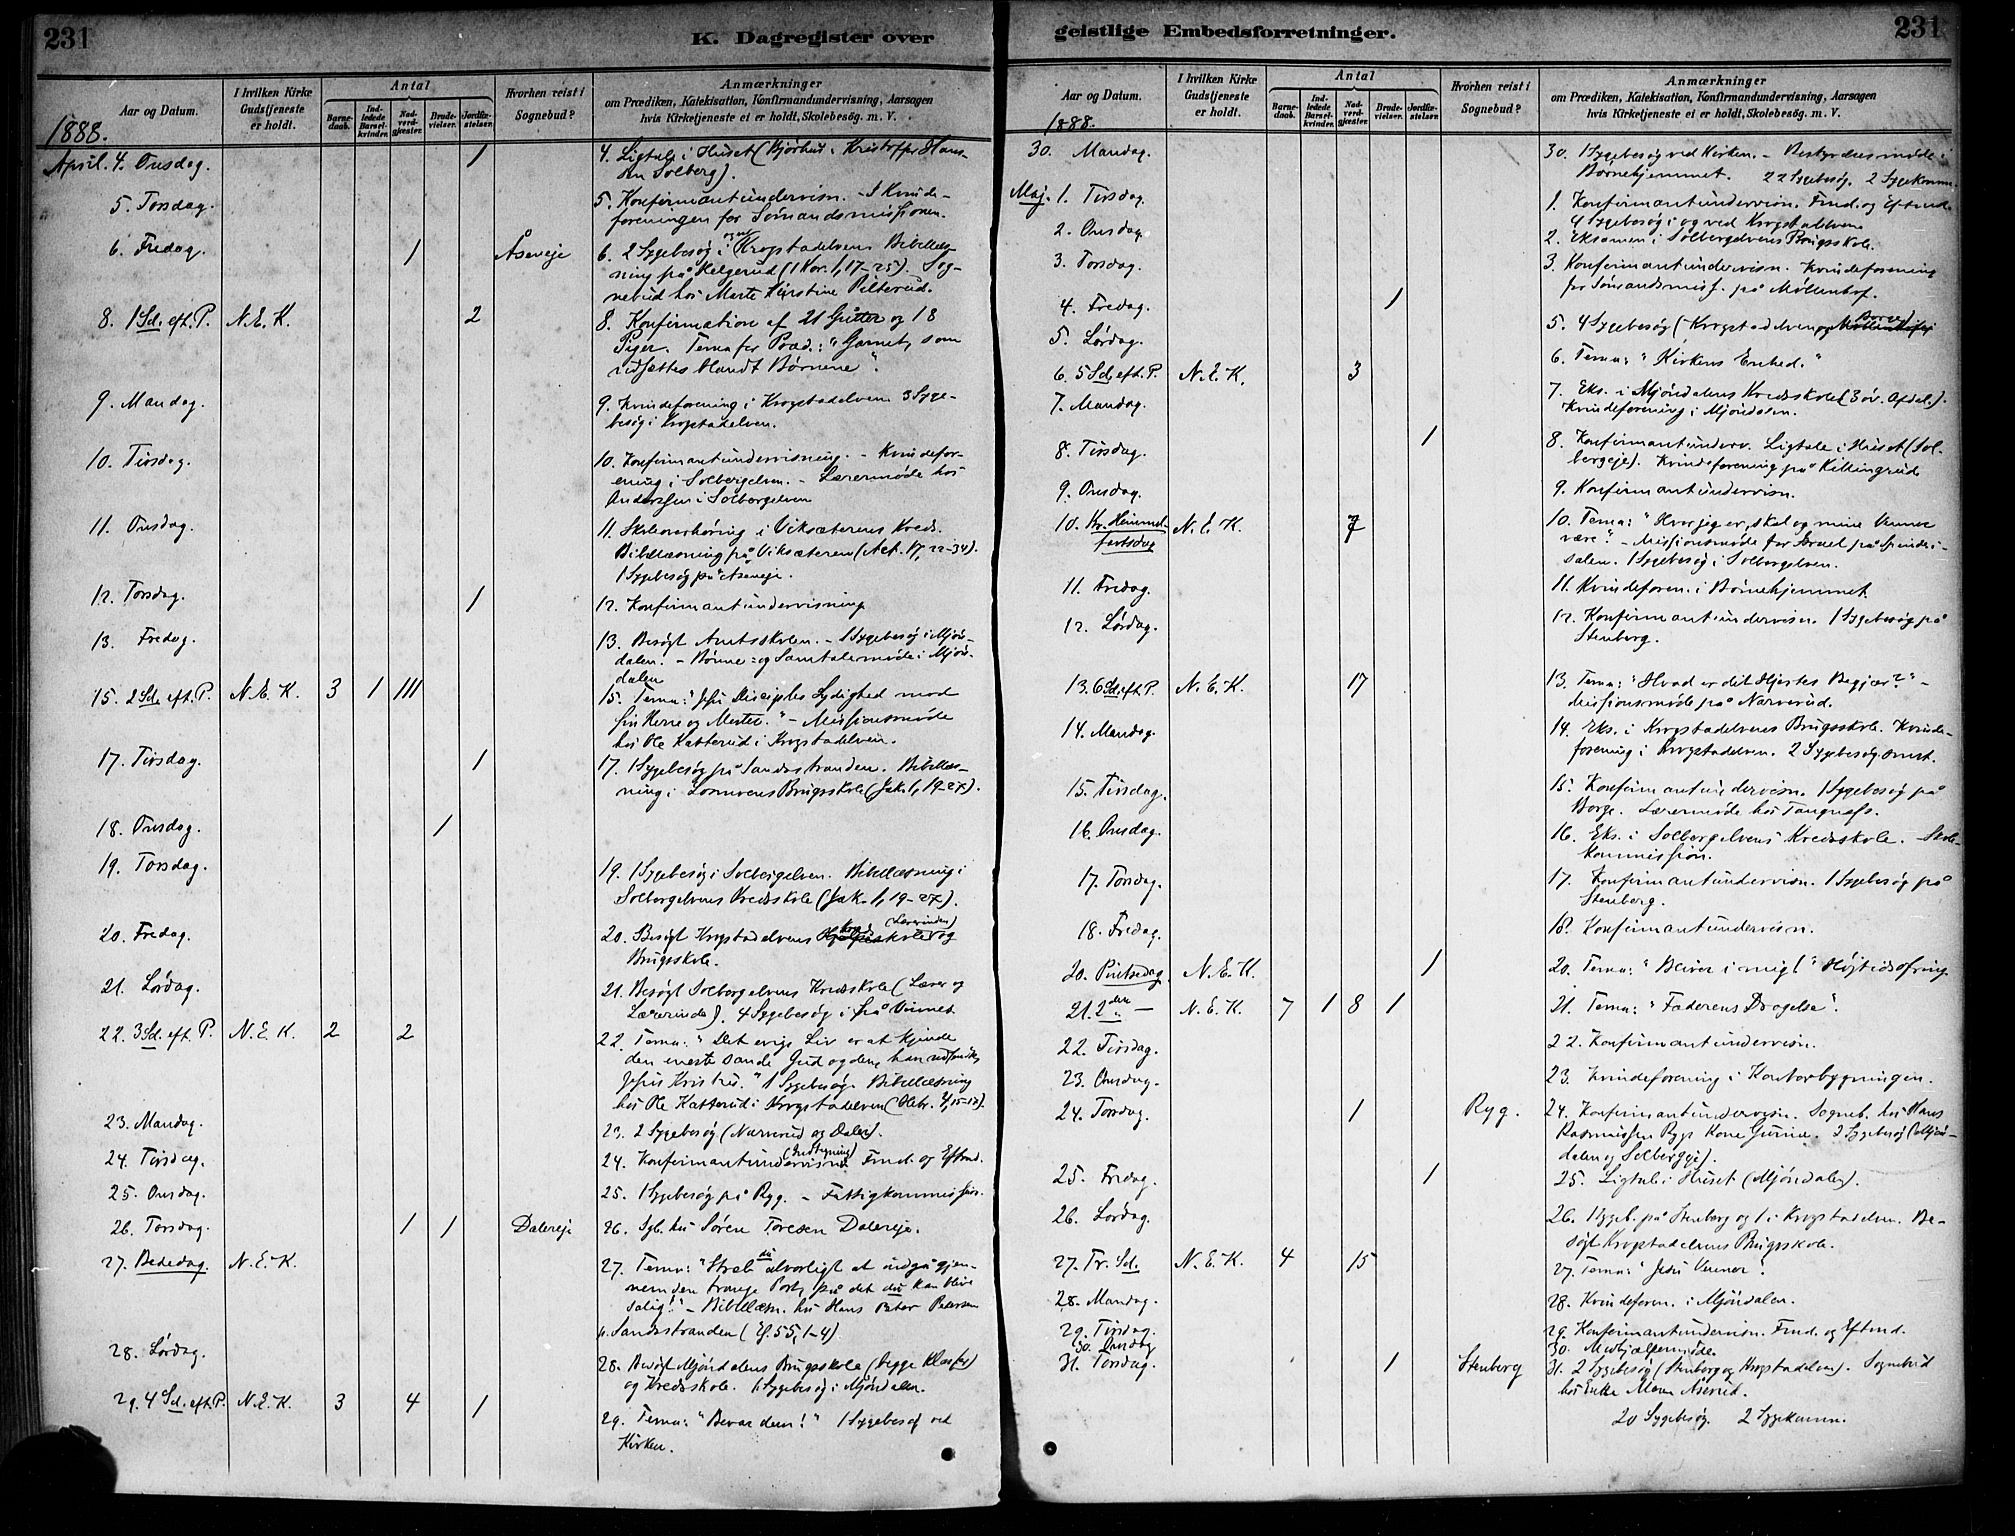 231
K. Dagregister over
Aar og Datum.
I hvilken Kirke Gudstjeneste er holdt.
Antal
Barnedaab.
Indledede Barselkvinder.
Nadverdgjester.
Brudevielser.
Jordfæstelser.
Hvorhen reist i Sognebud?
Anmærkninger
om Prædiken, Katekisation, Konfirmandundervisning, Aarsagen
hvis Kirketjeneste ei er holdt, Skolebesøg. m. V.
1888.
April. 4. Onsdag. 1 4. Ligtale i Huset (Kristoffer Hans-
sen Solberg).
5. Torsdag. 5. Konfirmantundervisn. - I Kvinde-
foreningen for Sømandsmissionen.
6. Fredag. 1 Åseveje 6. 2 Sygebesøg i Krogstadelven. Bibellæs-
ning på Helgerud (1 Kor. 1, 17-25). Sog-
nebud hos Marte Kirstine Pilterud.
8. 1 Sd. eft. P. N. E. K. 2 8. Konfirmation af 21 Gutter og 18
Piger. Tema for Præd.: "Garnet, som
udsættes blandt Børnene".
9. Mandag. 9. Kvindeforening i Krogstadelven. 3 Syge-
besøg i Krogstadelven.
10. Tirsdag. 10. Konfirmantundervisning. - Kvindefor-
ening i Solbergelven. - Lærermøde hos
Anderssen i Solbergelven
11. Onsdag. 11. Skoleoverhøring i Viksæterens Kreds.
Bibellæsning på Viksæteren (Act. 17, 22-34).
1 Sygebesøg på Aseveje.
12. Torsdag. 1 12. Konfirmantundervisning
13. Fredag. 13. Besøgt Amtsskolen. - 1 Sygebesøg i Mjøn-
dalen. - Bønne- og Samtalemøde i Mjøn-
dalen
15. 2 Sd. eft. P. N. E. K. 3 1 111 15. Tema: "Jesu Disciples Lydighed mod
sin Herre og Mester." - Missionsmøde
hos Ole Katterud i Krogstadelven.
17. Tirsdag. 1 17. 1 Sygebesøg på Sandsstranden. Bibellæs-
ning i Brugsskole (Jak. 1, 19-27).
18. Onsdag. 1
19. Torsdag. 19. 1 Sygebesøg i Solbergelven. Bibellæsning i
Solbergelvens Kredsskole (Jak. 1, 19-27).
20. Fredag. 20. Besøgt Krogstadelvens Kredsskole (Lærerinden) og
Brugsskole.
21. Lørdag. 21. Besøgt Solbergelvens Kredsskole (Lærer og
Lærerinde). 4 Sygebesøg i
22. 3 Sd. eft. P. N. E. K. 2 2 22. Tema: "Det evige Liv er at kjende
den eneste sande Gud og den, han udsendte,
Jesus Kristus." 1 Sygebesøg. Bibellæsning
hos Ole Katterud i Krogstadelven (Hebr. 4, 15-17).
23. Mandag. 23. 2 Sygebesøg (Narverud og Daler).
24. Tirsdag. 24. Konfirmantundervisn. (Indtegning) Fmd. og Eftmd.
25. Onsdag. 25. 1 Sygebesøg på Ryg. - Fattigkommission.
26. Torsdag. 1 1 Dalereje 26. Sgb. hos Søren Toresen Dalereje.
27. Bededag. N. E. K. 27. Tema: "Stræb du alvorligt at indgå gjen-
nem den trange Port, på det du kan blive
salig!" - Bibellæsn. hos Hans Peter Petersen
p. Sandsstranden (Es. 55, 1-4).
28. Lørdag. 28. Besøgt Mjøndalens Brugsskole (begge Klasser)
og Kredsskole. 1 Sygebesøg i Mjøndalen.
29. 4 Sd. eft. P. N. E. K. 3 4 1 29. Tema: "Bevar dem!" 1 Sygebesøg ved
Kirken.
geistlige Embedsforretninger.
231
Aar og Datum.
I hvilken Kirke Gudstjeneste er holdt.
Antal
Barnedaab.
Indledede Barselkvinder.
Nadverdgjester.
Brudevielser.
Jordfæstelser.
Hvorhen reist i Sognebud?
Anmærkninger
om Prædiken, Katekisation, Konfirmandundervisning, Aarsagen
hvis Kirketjeneste ei er holdt, Skolebesøg. m. V.
1888.
30. Mandag. 30. 1 Sygebesøg ved Kirken. - Bestyrelsesmøde i
Børnehjemmet. 22 Sygebesøg. 2 Sygekomm.
Maj. 1. Tirsdag. 1. Konfirmantundervisn. Fmd. og Eftmd.
4 Sygebesøg i og ved Krogstadelven
2. Onsdag. 2. Eksamen i Solbergelvens Brugsskole.
3. Torsdag. 3. Konfirmantundervisn. Kvindeforening
for Sømandsmiss. på Møllenhof.
4. Fredag. 1
5. Lørdag. 5. 4 Sygebesøg (Krogstadelven og
6. 5 Sd. eft. P. N. E. K. 3 6. Tema: "Kirkens Enhed."
7. Mandag. 7. Eks. i Mjøndalens Kredsskole (3 øv. Afdel.).
Kvindeforening i Mjøndalen.
8. Tirsdag. 1 8. Konfirmantunderv. Ligtale i Huset (Sol-
bergeje). Kvindeforening på Killingrud
9. Onsdag. 9. Konfirmantundervisn.
10. Kr. Himmel-
fartsdag N. E. K. 7 10. Tema: "Hvor jeg er, skal og mine Venner
være". - Missionsmøde for Israel på Spinderi-
salen. 1 Sygebesøg i Solbergelven.
11. Fredag. 11. Kvindeforen. i Børnehjemmet
12. Lørdag. 12. Konfirmantundervisn. 1 Sygebesøg på
Stenberg.
13. 6 Sd. eft. P. N. E. K. 17 13. Tema: "Hvad er dit Hjertes Begjær?" -
Missionsmøde på Narverud.
14. Mandag. 14. Eks. i Krogstadelvens Brugsskole. Kvinde-
forening i Krogstadelven. 2 Sygebesøg
15. Tirsdag. 15. Konfirmantundervisn. 1 Sygebesøg på
Borge. Lærermøde hos
16. Onsdag. 16. Eks. i Solbergelvens Kredsskole. Skole-
kommission.
17. Torsdag. 17. Konfirmantundervisn. 1 Sygebesøg på
Stenberg.
18. Fredag. 18. Konfirmantundervisn.
20. Pintsedag. N. E. K. 1 20. Tema: "Bliver i mig!" Højtidsofring
21. 2den — N. E. K. 7 1 8 1 21. Tema: "Faderens Dragelse".
22. Tirsdag. 22. Konfirmantundervisn.
23. Onsdag. 23. Kvindeforening i Kontorbygningen.
24. Torsdag. 1 Ryg. 24. Konfirmantundervisn. Sogneb. hos Hans
Rasmussen Rygs Kone Gurine. 2 Sygebesøg (Mjøn-
dalen og Solbergeje).
25. Fredag. 1 25. Ligtale i Huset (Mjøndalen).
26. Lørdag. 26. 1 Sygeb. på Stenberg og 1 i Krogstadelven. Be-
søgt Krogstadelvens Brugsskole.
27. Tr. Sd. N. E. K. 4 15 27. Tema: "Jesu Venner".
28. Mandag. 28. Kvindeforen. i Mjøndalen.
29. Tirsdag. 29. Konfirmantundervisn. Fmd. og Eftmd.
30. Onsdag 30. Medhjælpermøde
31. Torsdag. 1 Stenberg 31. 2 Sygebesøg (Stenberg og Krogstadelven). Sognebud
hos Enke Maren Åserud.
20 Sygebesøg. 2 Sygekomm.